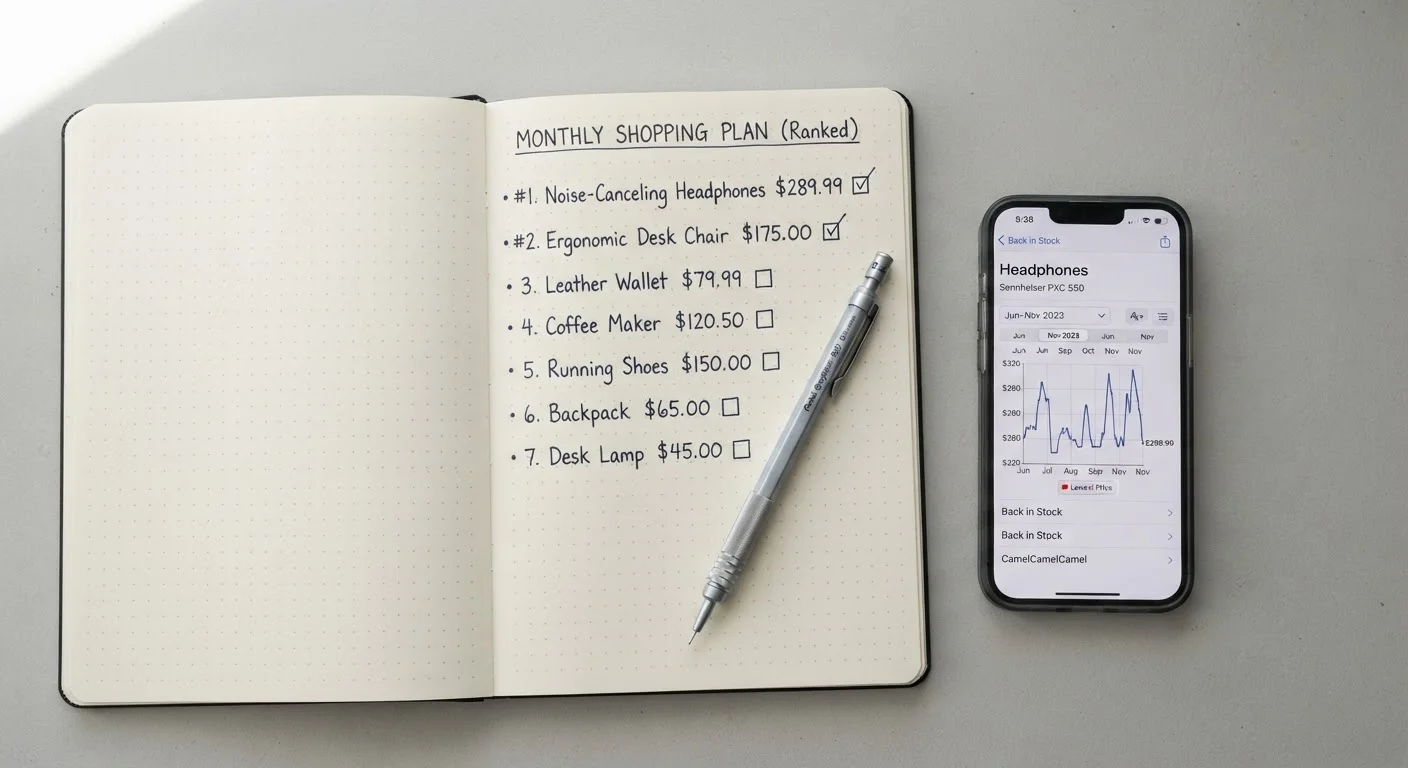 MONTHLY SHOPPING PLAN (Ranked)
• #1. Noise-Canceling Headphones $289.99
• #2. Ergonomic Desk Chair $175.00
• 3. Leather Wallet $79.99
• 4. Coffee Maker $120.50
• 5. Running Shoes $150.00
• 6. Backpack $65.00
• 7. Desk Lamp $45.00
Back in Stock
Headphones
Sennhelser PXC 550
Jun-Nov 2023
Jun Nov 2023 Jun Nov
Jun Jun Sep Oct Nov Nov
$320
$280
$280
$280
$220
£298.90
Jun Jul Aug Sep Nov Nov
Back in Stock
Back in Stock
CamelCamelCamel